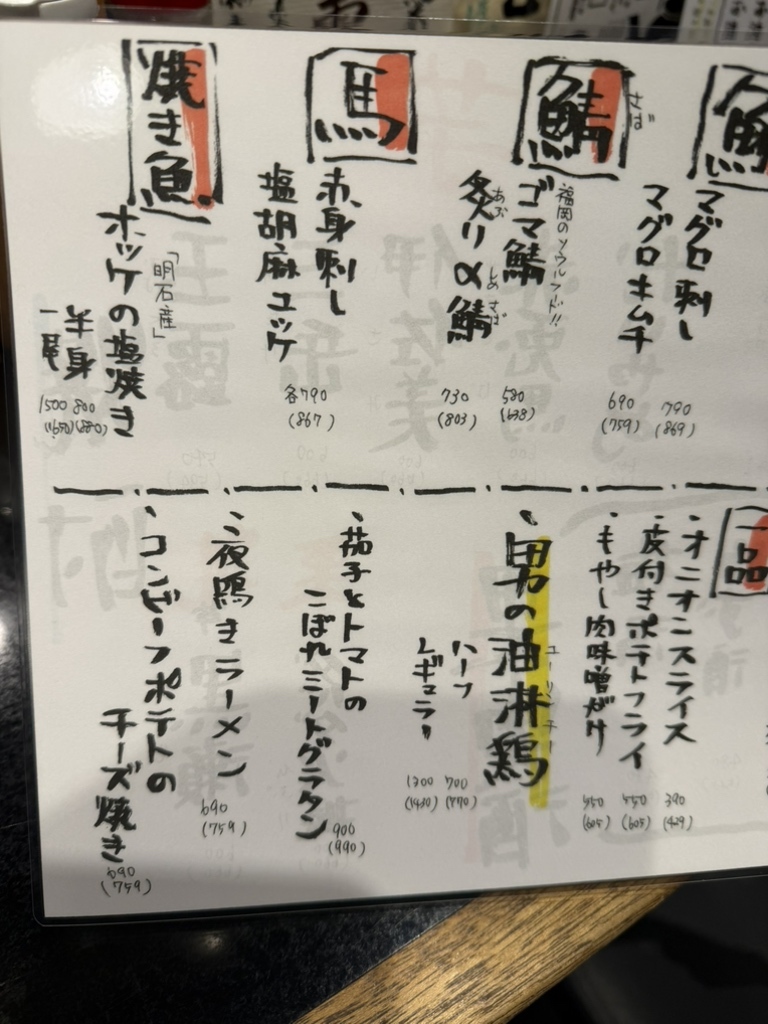 マグロ刺し
790
(869)
マグロキムチ
690
(759)
鯖
さば
福岡のソウルフード!!
ゴマ鯖
580
(638)
炙り〆鯖
あぶ しめさば
730
(803)
馬
赤身刺し
塩胡麻ユッケ
各790
(867)
焼き魚
「明石産」
ホッケの塩焼き
半身
800
(880)
1500
(1650)
一品
・オニオンスライス
390
(429)
・皮付きポテトフライ
550
(605)
・もやし肉味噌がけ
550
(605)
・男の油淋鶏
ユーリンチー
ハーフ
700
(770)
レギュラー
1300
(1430)
・茄子とトマトの
こぼれミートグラタン
900
(990)
・夜鳴きラーメン
690
(759)
・コンビーフポテトの
チーズ焼き
690
(759)